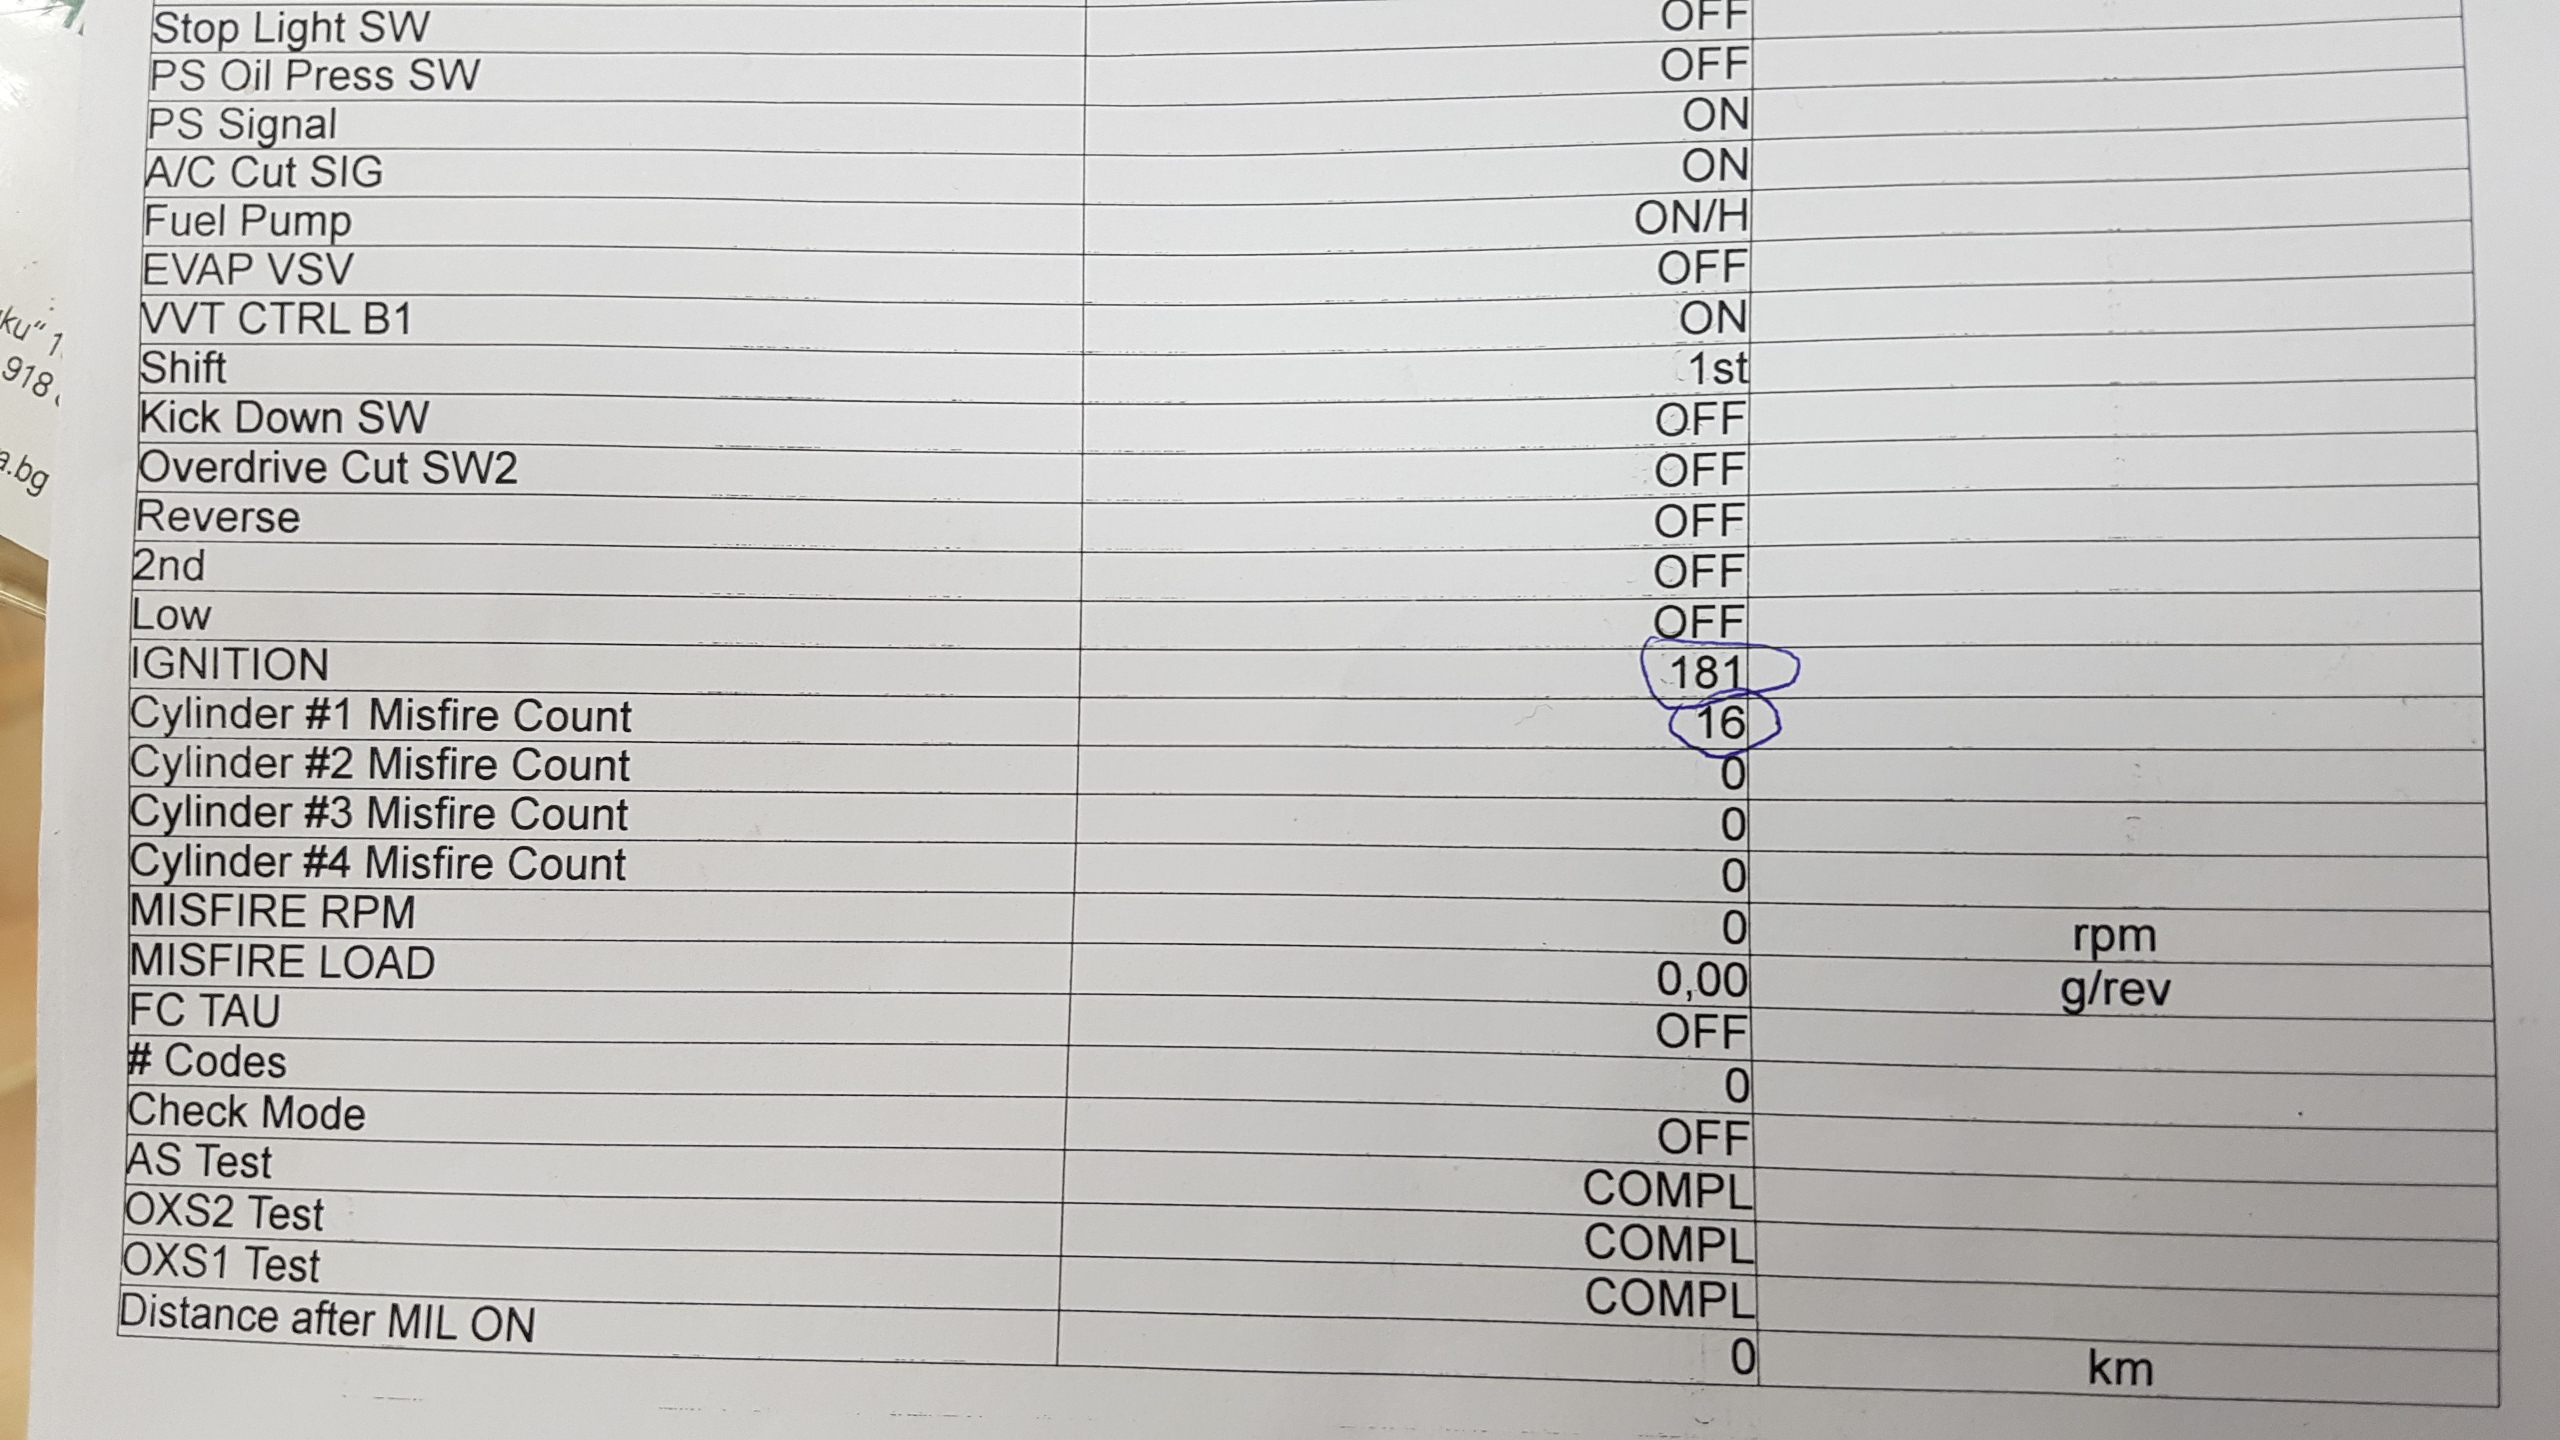 Stop Light SW OFF
PS Oil Press SW OFF
PS Signal ON
A/C Cut SIG ON
Fuel Pump ON/H
EVAP VSV OFF
VVT CTRL B1 ON
Shift 1st
Kick Down SW OFF
Overdrive Cut SW2 OFF
Reverse OFF
2nd OFF
Low OFF
IGNITION 181
Cylinder #1 Misfire Count 16
Cylinder #2 Misfire Count 0
Cylinder #3 Misfire Count 0
Cylinder #4 Misfire Count 0
MISFIRE RPM 0 rpm
MISFIRE LOAD 0,00 g/rev
FC TAU OFF
# Codes 0
Check Mode OFF
AS Test COMPL
OXS2 Test COMPL
OXS1 Test COMPL
Distance after MIL ON 0 km
918
a.bg